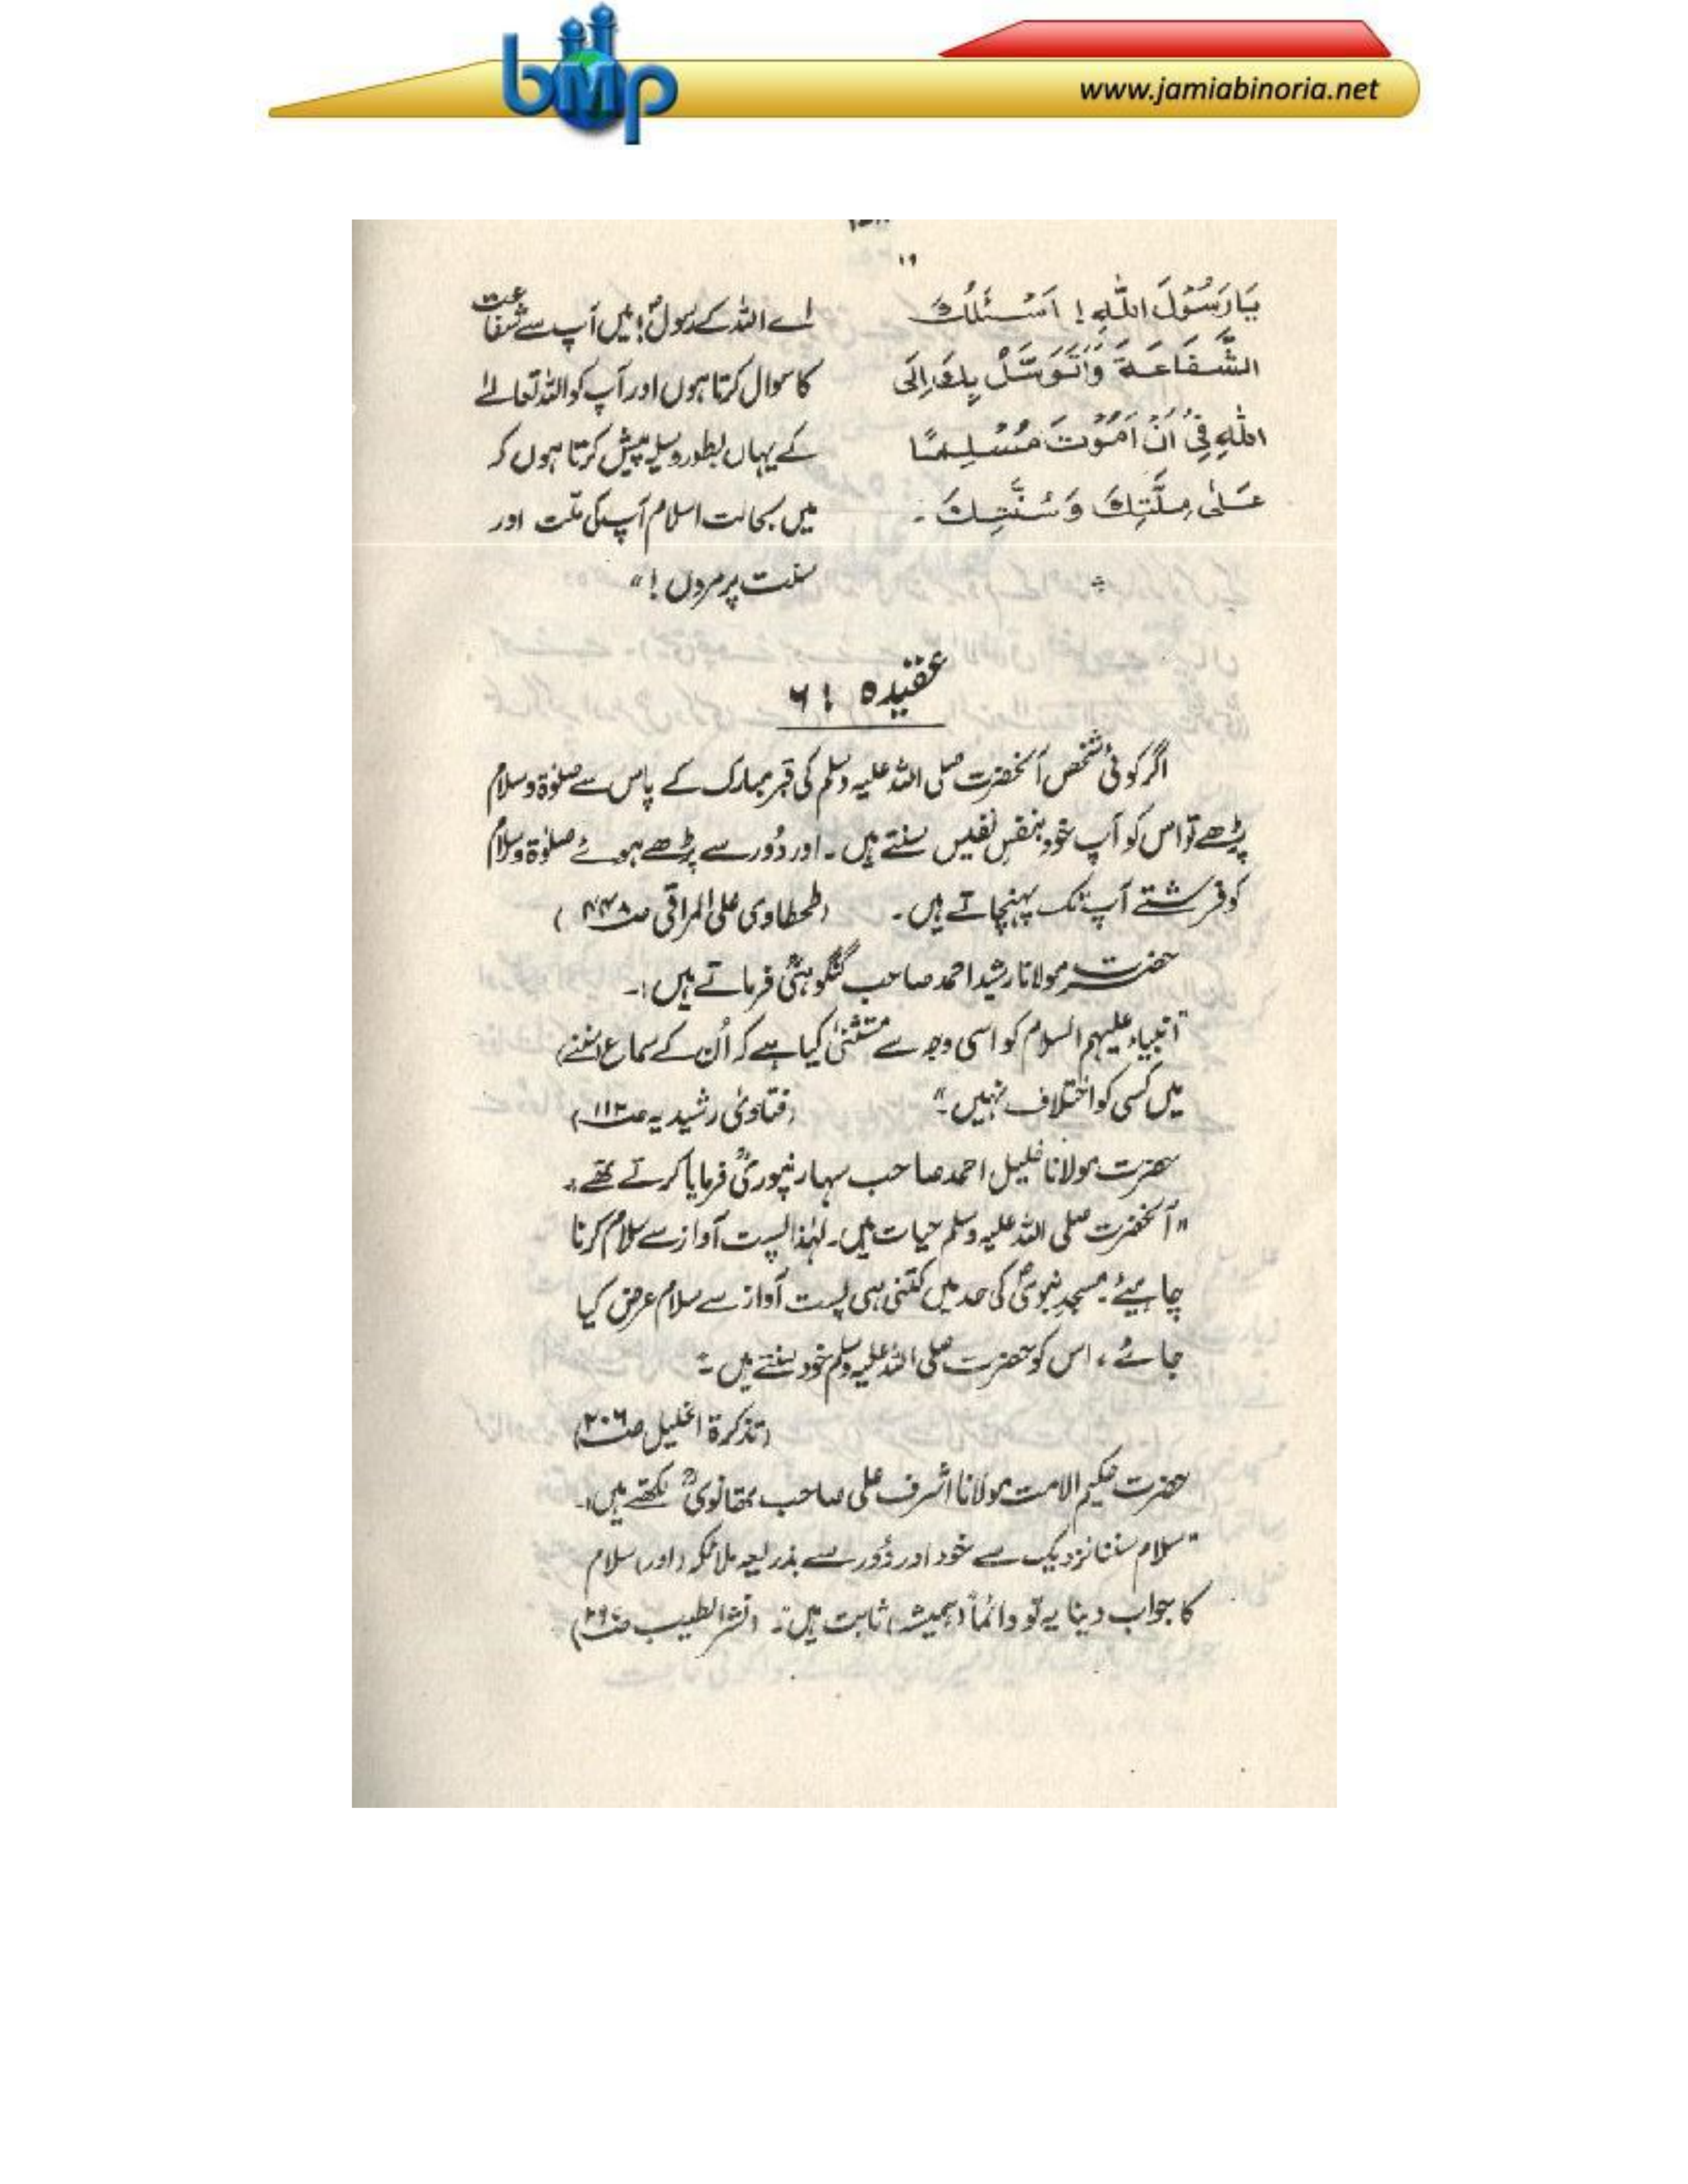 www.jamiabinoria.net
bmp
۱۹
يَارَسُوْلَ اللّٰهِ! اَسْئَلُكَ
الشَّفَاعَةَ وَاَتَوَسَّلُ بِكَ اِلَى
اللّٰهِ فِىْ اَنْ اَمُوْتَ مُسْلِمًا
عَلٰى مِلَّتِكَ وَسُنَّتِكَ۔
اے اللہ کے رسولؐ! میں آپ سے شفاعت
کا سوال کرتا ہوں اور آپ کو اللہ تعالےٰ
کے یہاں بطور وسیلہ پیش کرتا ہوں کہ
میں بحالت اسلام آپ کی ملّت اور
سنت پر مروں!"
عقیدہ ۶:
اگر کوئی شخص آنحضرت صلی اللہ علیہ وسلم کی قبر مبارک کے پاس سے صلوٰۃ وسلام
پڑھے تو اس کو آپ خود بنفس نفیس سنتے ہیں۔ اور دُور سے پڑھے ہوئے صلوٰۃ وسلام
کو فرشتے آپ تک پہنچاتے ہیں۔ (طحطاوی علی المراقی ص۴۴۸)
حضرت مولانا رشید احمد صاحب گنگوہیؒ فرماتے ہیں:۔
"انبیاء علیہم السلام کو اسی وجہ سے مستثنیٰ کیا ہے کہ اُن کے سماع (سننے)
میں کسی کو اختلاف نہیں۔" (فتاویٰ رشیدیہ ص۱۱۲)
حضرت مولانا خلیل احمد صاحب سہارنپوریؒ فرمایا کرتے تھے:۔
"آنحضرت صلی اللہ علیہ وسلم حیات ہیں۔ لہٰذا پست آواز سے سلام کرنا
چاہیئے۔ مسجد نبویؐ کی حد میں کتنی ہی پست آواز سے سلام عرض کیا
جائے، اس کو حضرت صلی اللہ علیہ وسلم خود سنتے ہیں۔"
(تذکرۃ الخلیل ص۲۰۶)
حضرت حکیم الامت مولانا اشرف علی صاحب تھانویؒ لکھتے ہیں:۔
"سلام سننا نزدیک سے خود اور دُور سے بذریعہ ملائکہ (اور) سلام
کا جواب دینا یہ تو دائماً (ہمیشہ) ثابت ہیں۔" (نشر الطیب